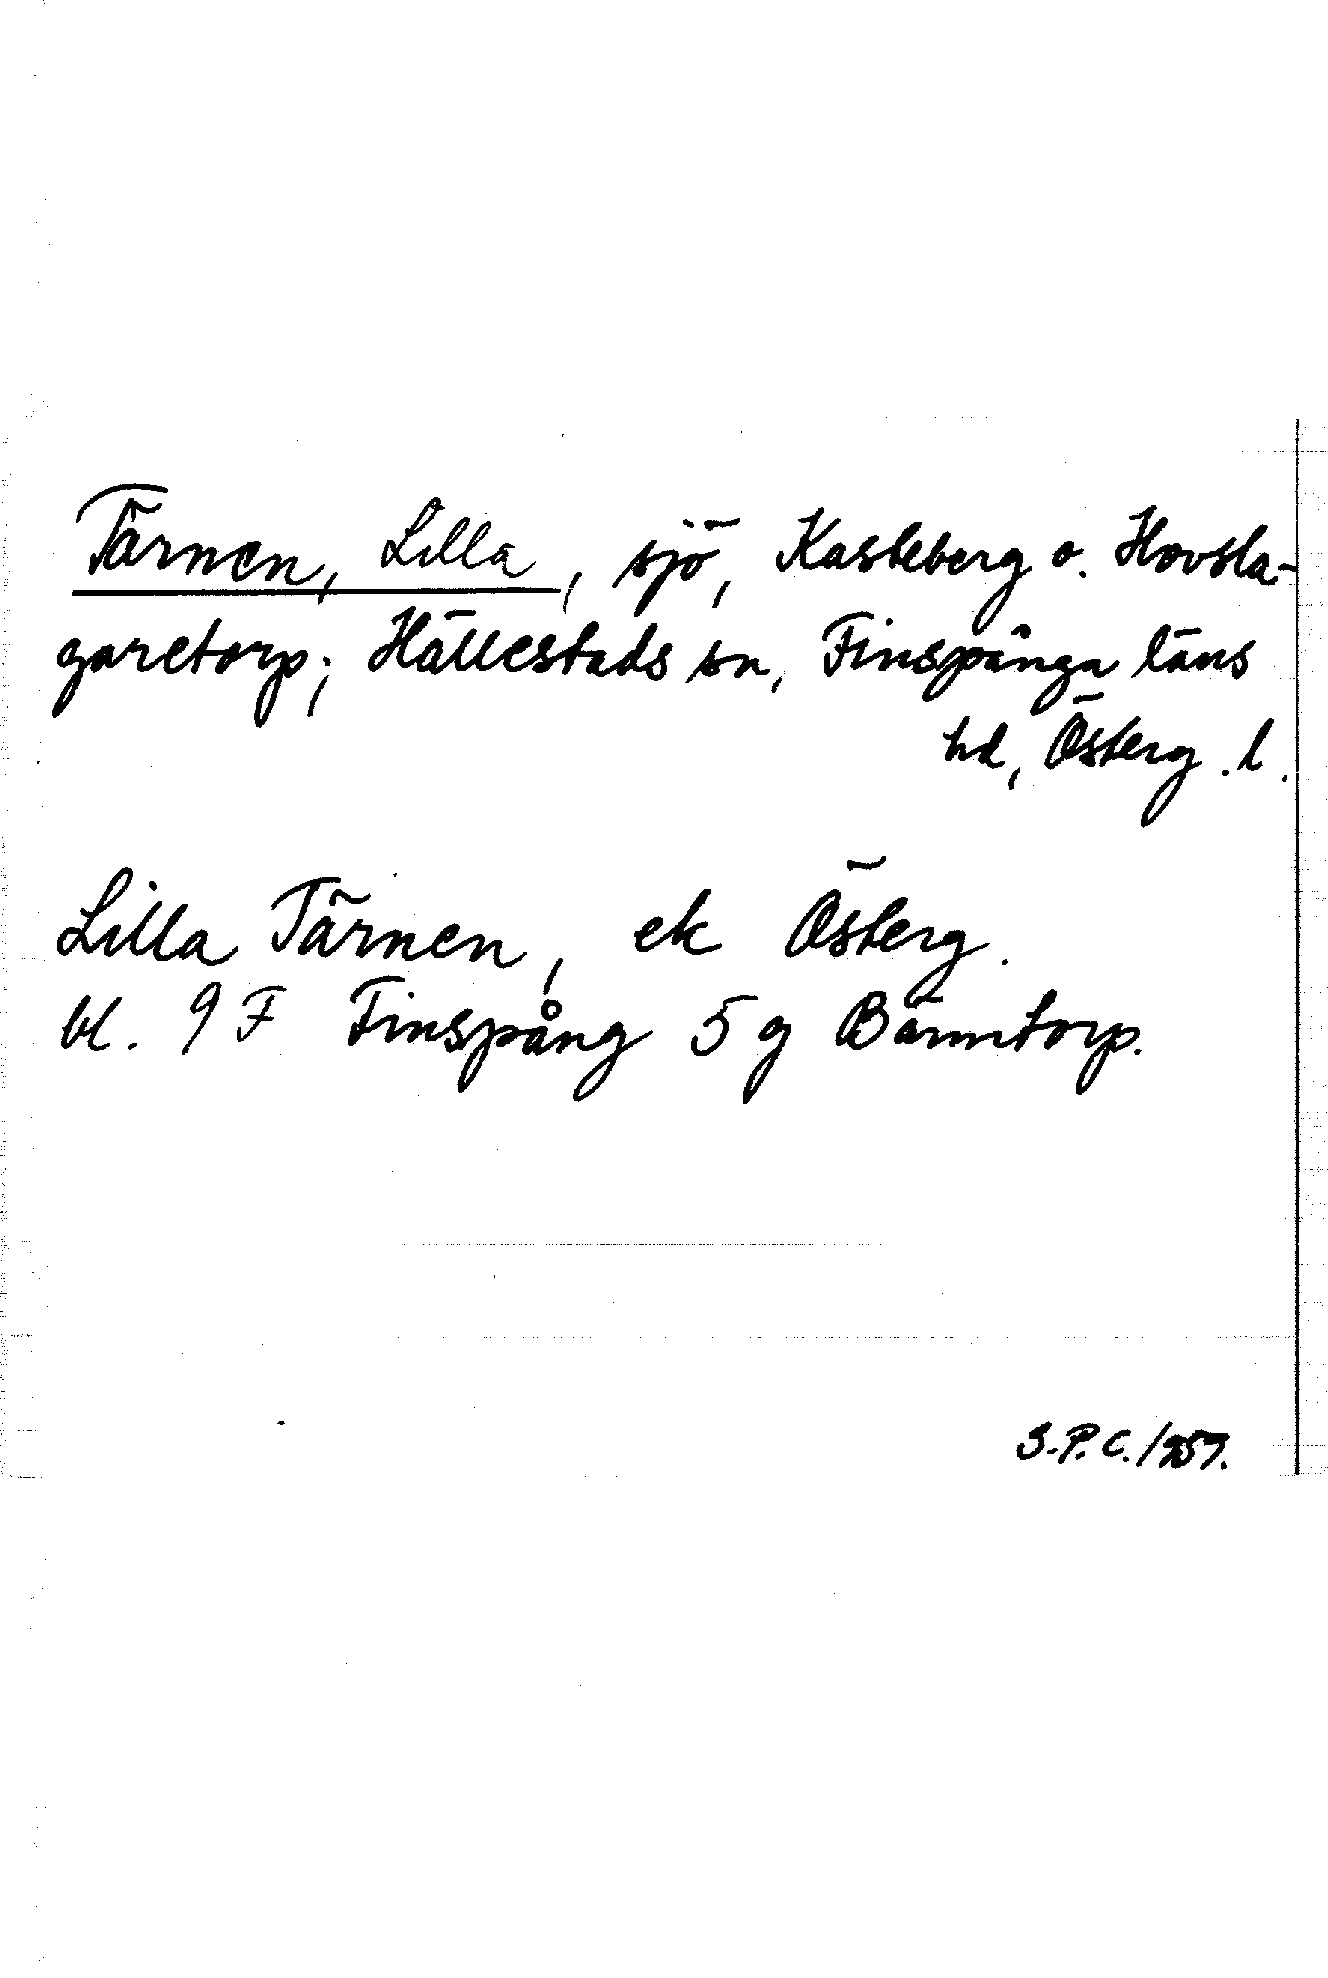 Tärnen, Lilla, sjö, Kasteberg o. Hovsla-
garetorp; Hällestads sn, Finspånga läns
hd, Österg. l.
Lilla Tärnen, ek Österg.
bl. 9 F Finspång 5 g Bänntorp.
S.P.C. /957.